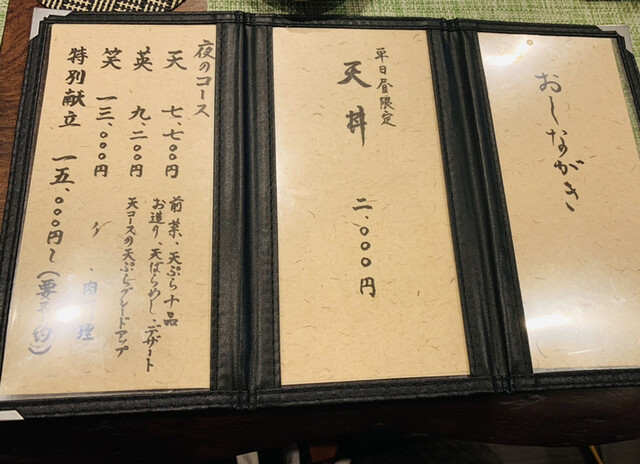 おしながき
平日昼限定
天丼 二、〇〇〇円
夜のコース
天 七、七〇〇円 前菜、天ぷら十品
お造り、天ばらめし、デザート
英 九、二〇〇円 天コースの天ぷらグレードアップ
笑 一三、〇〇〇円 〃 、肉 理
特別献立 一五、〇〇〇円〜(要予約)